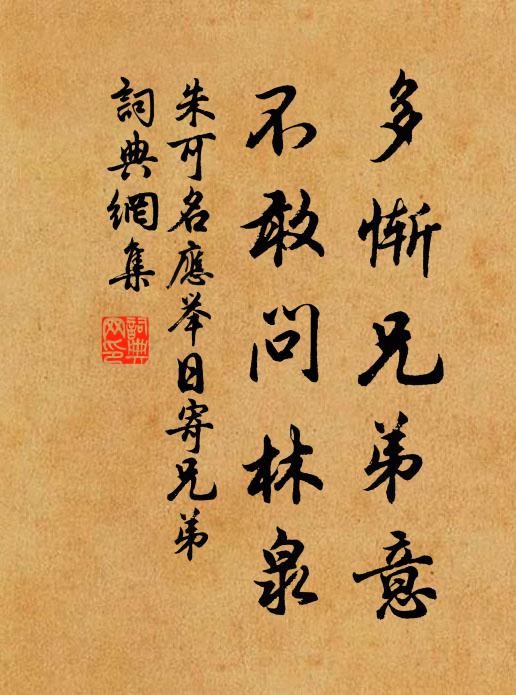 多慚兄弟意
不敢問林泉
朱可名應举日寄兄弟
詞典網集
詞典
网印